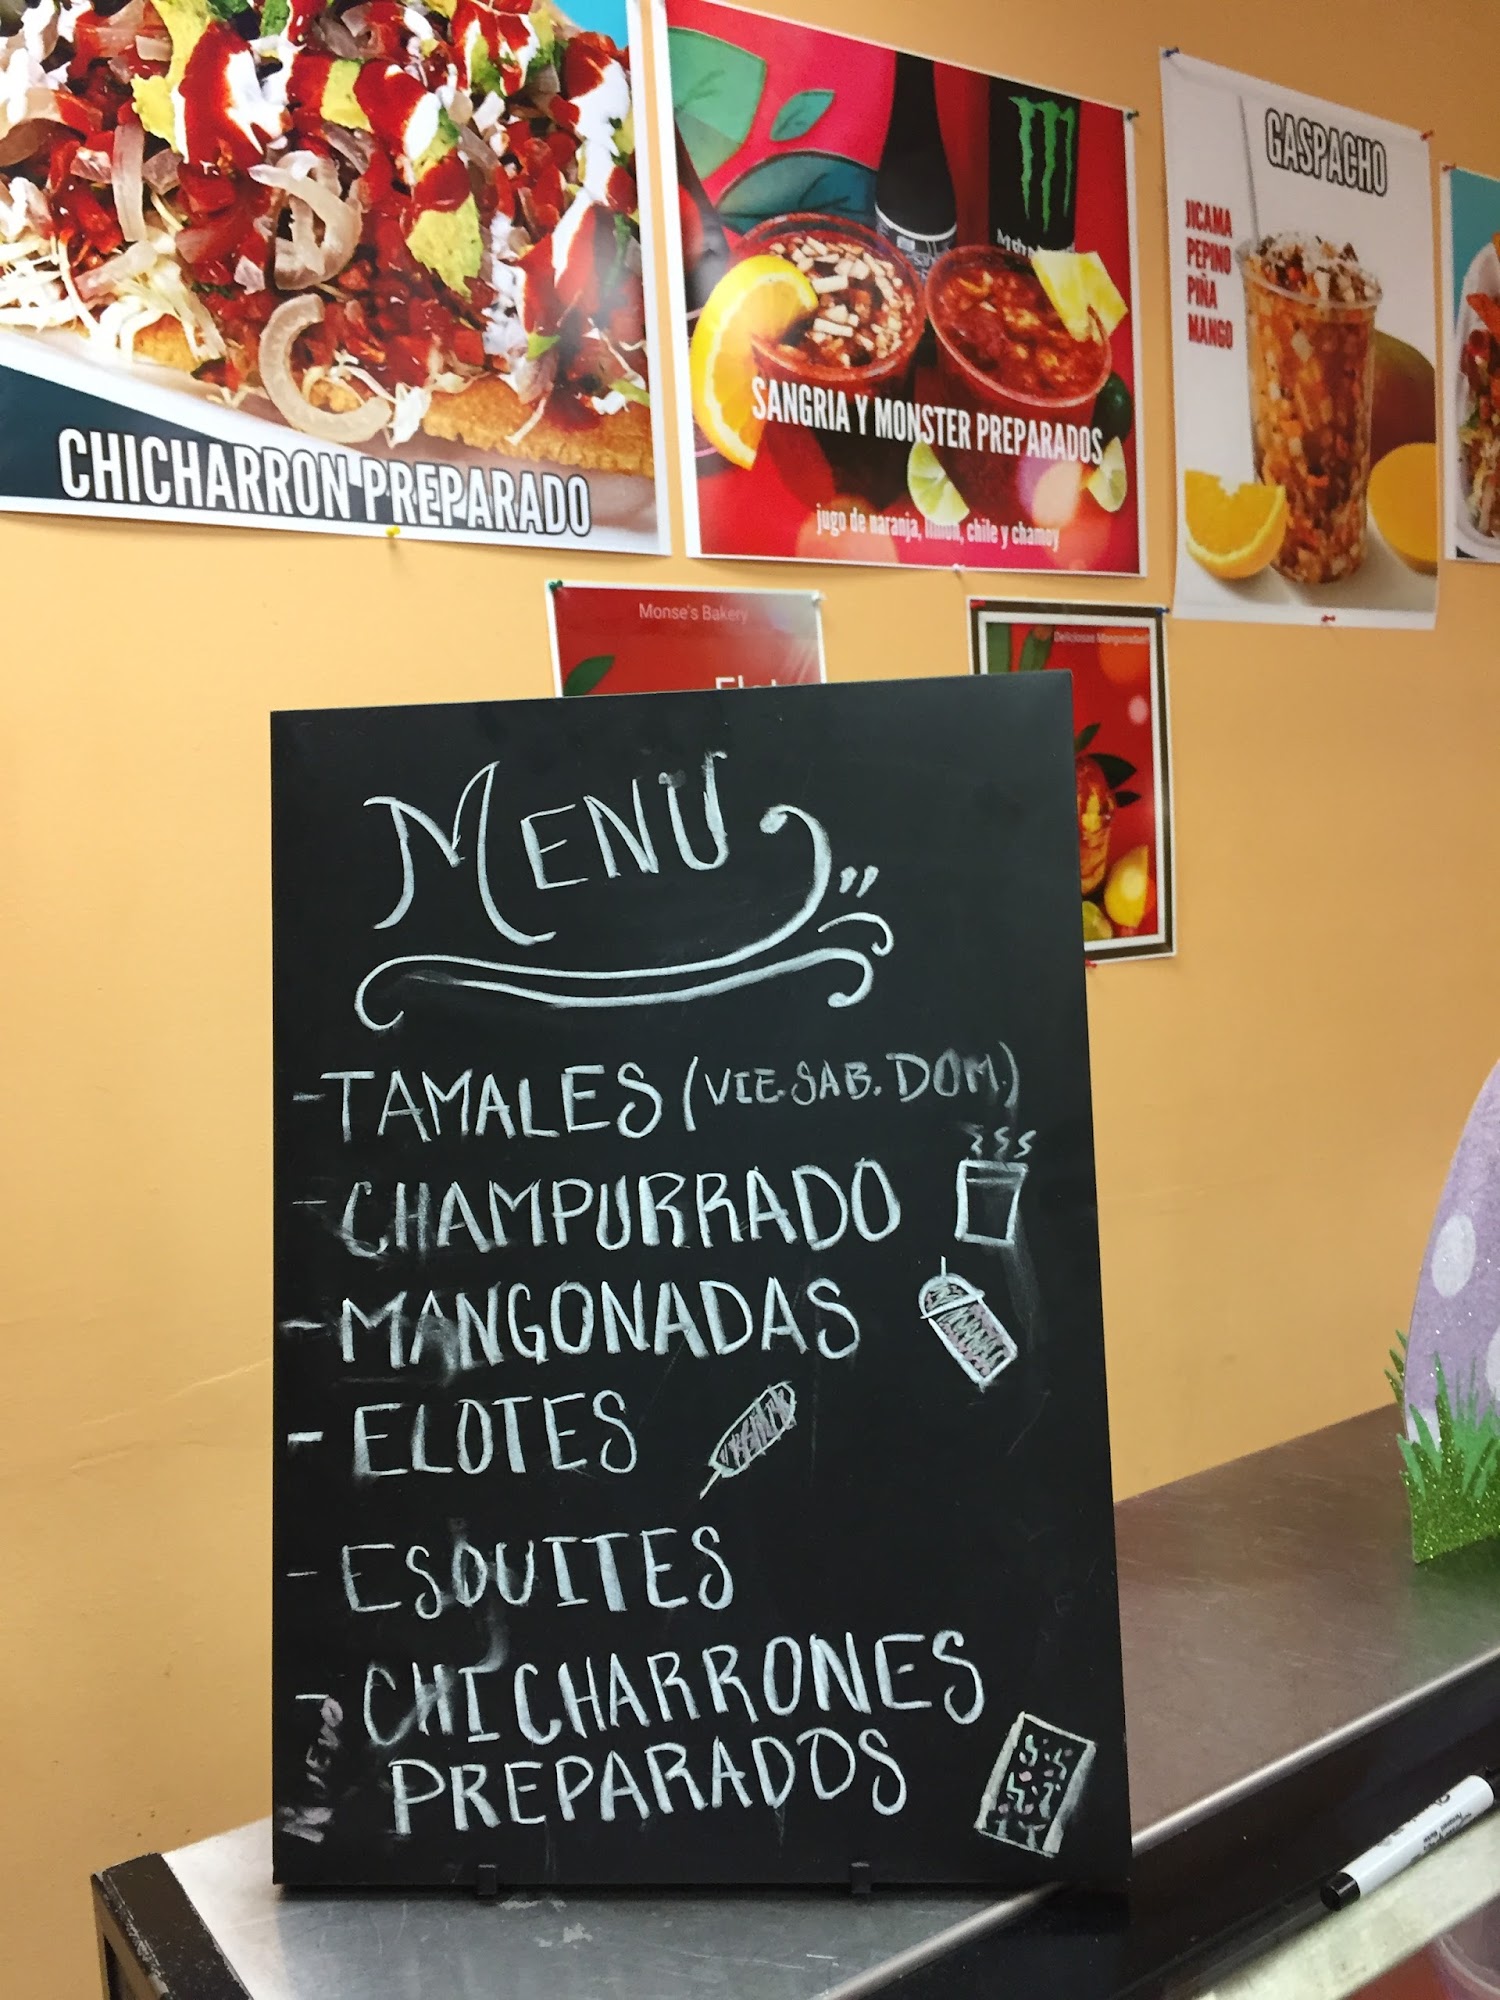 CHICHARRON PREPARADO
SANGRIA Y MONSTER PREPARADOS
jugo de naranja, limon, chile y chamoy
GASPACHO
JICAMA
PEPINO
PIÑA
MANGO
Monse's Bakery
Deliciosas Mangonadas
MENU
-TAMALES (VIE. SAB. DOM.)
-CHAMPURRADO
-MANGONADAS
-ELOTES
-ESQUITES
NUEVO
CHICHARRONES
PREPARADOS